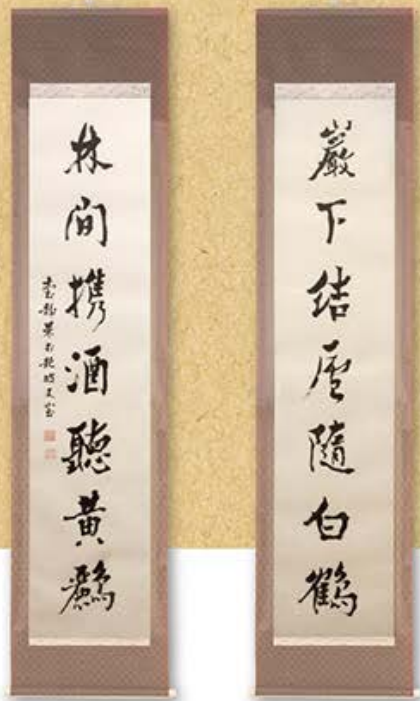 巖下結廬隨白鶴
林間携酒聽黃鸝